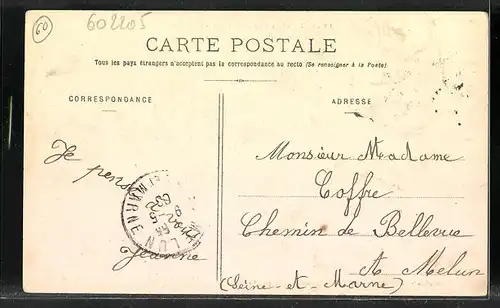 60
602205
CARTE POSTALE
Tous les pays étrangers n'acceptent pas la correspondance au recto (Se renseigner à la Poste)
CORRESPONDANCE
ADRESSE
Je
pense
Jeanne
Monsieur Madame
Coffre
Chemin de Bellevue
A Melun
(Seine-et-Marne)